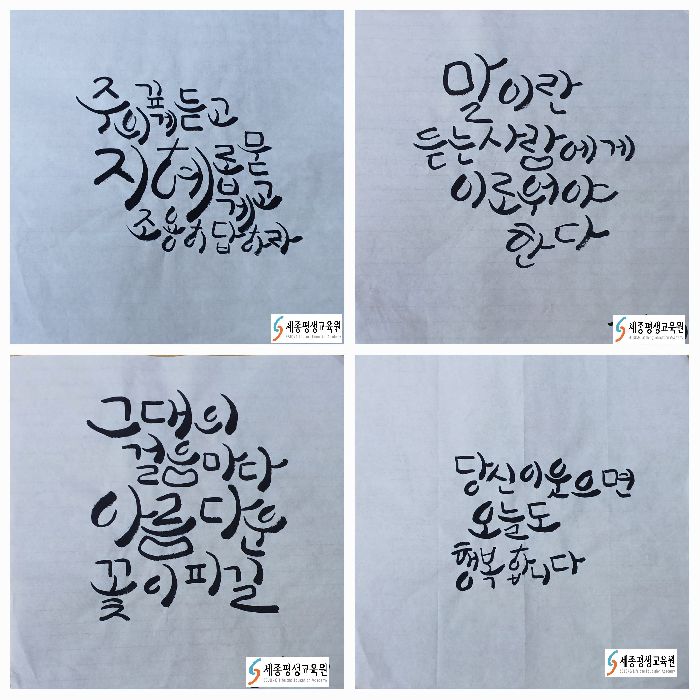 주의깊게듣고
지혜롭게묻고
조용히답하라
세종평생교육원
말이란
듣는사람에게
이로워야
한다
세종평생교육원
그대의
걸음마다
아름다운
꽃이피길
세종평생교육원
SEJONG Life and Education Academy
당신이웃으면
오늘도
행복합니다
세종평생교육원